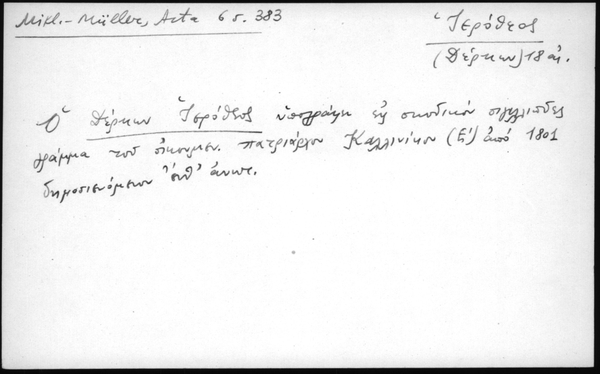 Mikl.-Müller, Acta 6 σ. 383
Ἱερόθεος
(Δέρκων) 18 αἰ.
Ὁ Δέρκων Ἱερόθεος ὑπογράφει εἰς συνοδικὸν σιγιλλιῶδες
γράμμα τοῦ οἰκουμεν. πατριάρχου Καλλινίκου (Ε') ἀπὸ 1801
δημοσιευόμενον ἔνθ' ἄνωτ.